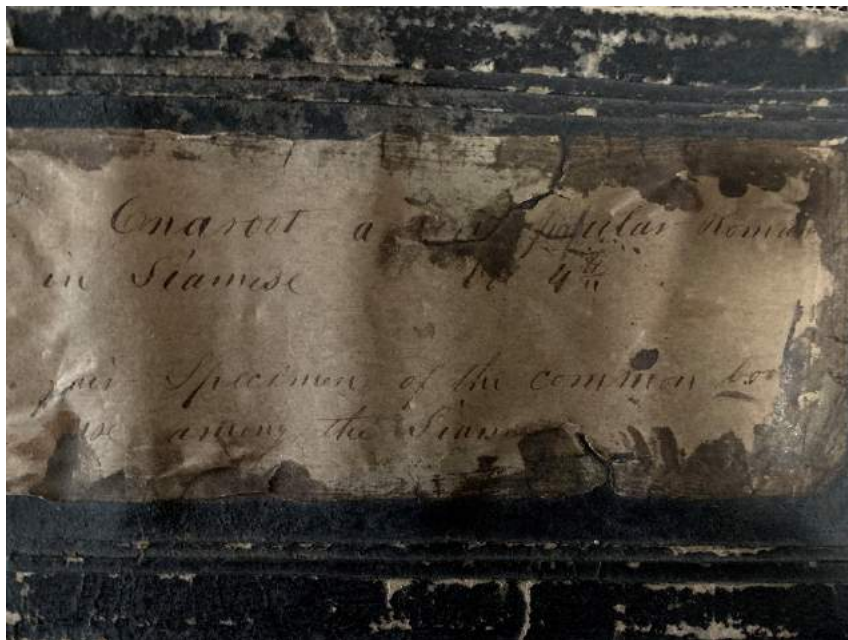 Enarott a very popular Roman
in Siamese No 4
fair Specimen of the common boo
use among the Siam